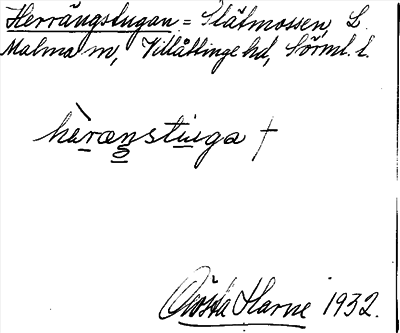 Herrängstugan = Slätmossen, L.
Malma sn, Villåttinge hd, Sörml. l.
hæ̀rænstuga †
Gösta Harne 1932.